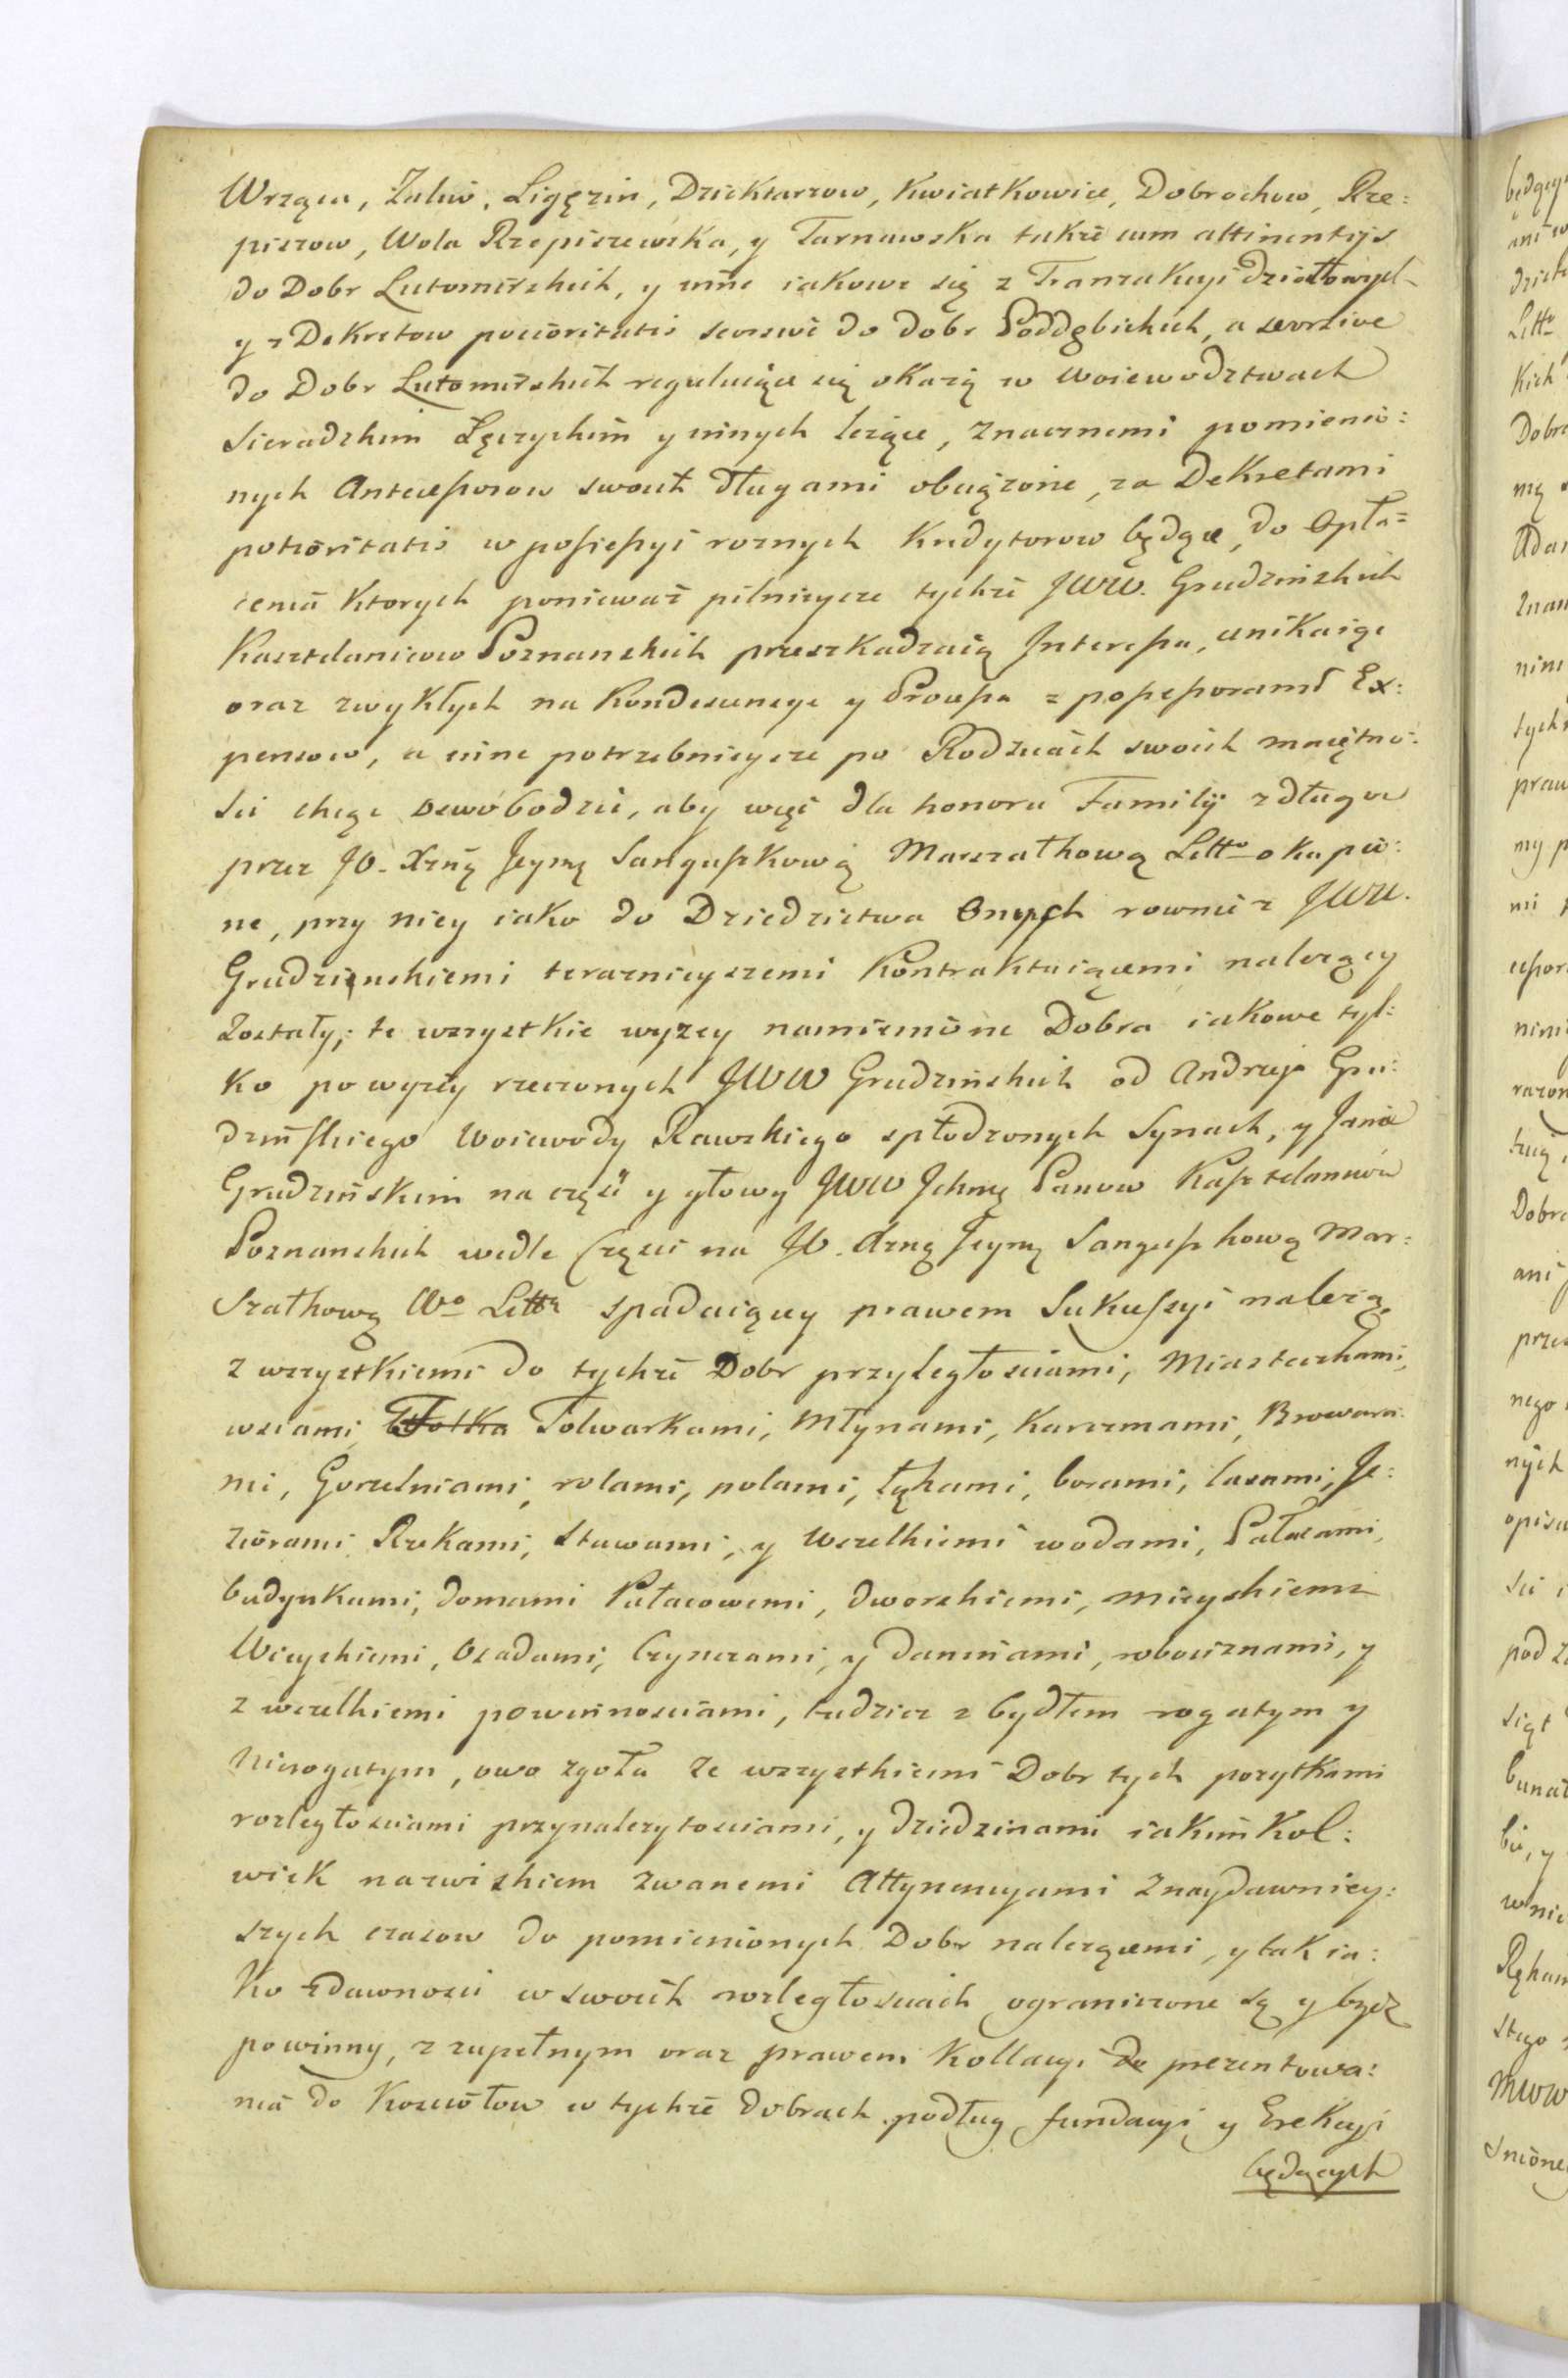 Wrząca, Zalew, Ligęzin, Dziektarzow, Kwiatkowice, Dobrochow, Rze:
piszow, Wola Rzepiszewska, y Tarnawska takze cum attinentijs
do Dobr Lutomirskich, y inne iakowe się z Tranzakcyi działowych
y z Dekretow potioritatis seorsive do dobr Poddębickich, a seorsive
do Dobr Lutomirskich reguluiące się okażą w Woiewodztwach
Sieradzkim Łęczyckim y innych leżące, znacznemi pomienio:
nych Antecessorow swoich długami obciążone, za Dekretami
potioritatis w possessyi roznych Kredytorow będące, do Opła=
cenia ktorych poniewaz pilnieysze tychże JWW. Grudzinskich
Kasztelanicow Poznanskich przeszkadzaią Interessa, unikaiąc
oraz zwykłych na Kondescencye y Processa z possessorami Ex:
pensow, a inne potrzebnieysze po Rodzicach swoich maiętno:
sci chcąc oswobodzic, aby więc dla honoru Familij z długow
przez JO. Xzną Jeymę Sanguszkową Marszałkową Litt. okupio:
ne, przy niey iako do Dziedzictwa Onych rownie z JWW.
Grudzinskiemi teraznieyszemi Kontraktuiącemi nalezącey
zostały; te wszystkie wyzey namienione Dobra iakowe tyl:
ko po wyzey rzeczonych JWW Grudzinskich od Andrzeja Gru:
dzińskiego Woiewody Rawskiego spłodzonych Synach, y Janie
Grudzinskim na częsc y głowy JWW Jchmę Panow Kasztelanicow
Poznanskich wedle Częsci na JO. Xzną Jeymę Sanguszkową Mar:
szałkową Wo Litta spadaiącey prawem Sukcessyi nalezą,
z wszystkiemi do tychże Dobr przyległosciami, Miasteczkami,
wsiami, Folwarkami, Młynami, Karczmami, Browara:
mi, Gorzelniami, rolami, polami, łąkami, borami, lasami, Je:
ziorami Rzekami, Stawami, y Wszelkiemi wodami, Pałacami,
budynkami, domami Pałacowemi, dworskiemi, mieyskiemi
Wieyskiemi, Osadami, Czynszami, y daninami, robociznami, y
z wszelkiemi powinnosciami, tudziez z bydłem rogatym y
nierogatym, owo zgoła ze wszystkiemi Dobr tych pozytkami
rozległosciami przynalezytosciami, y dziedzinami iakimkol:
wiek nazwiskiem zwanemi Attynencyami z naydawniey:
szych czasow do pomienionych Dobr nalezącemi, y tak ia:
ko z dawnosci w swoich rozległosciach ograniczone są y bydz
powinny, z zupełnym oraz prawem Kollacyi do prezentowa:
nia do Kosciołow w tychże Dobrach podług fundacyi y Erekcyi
będących